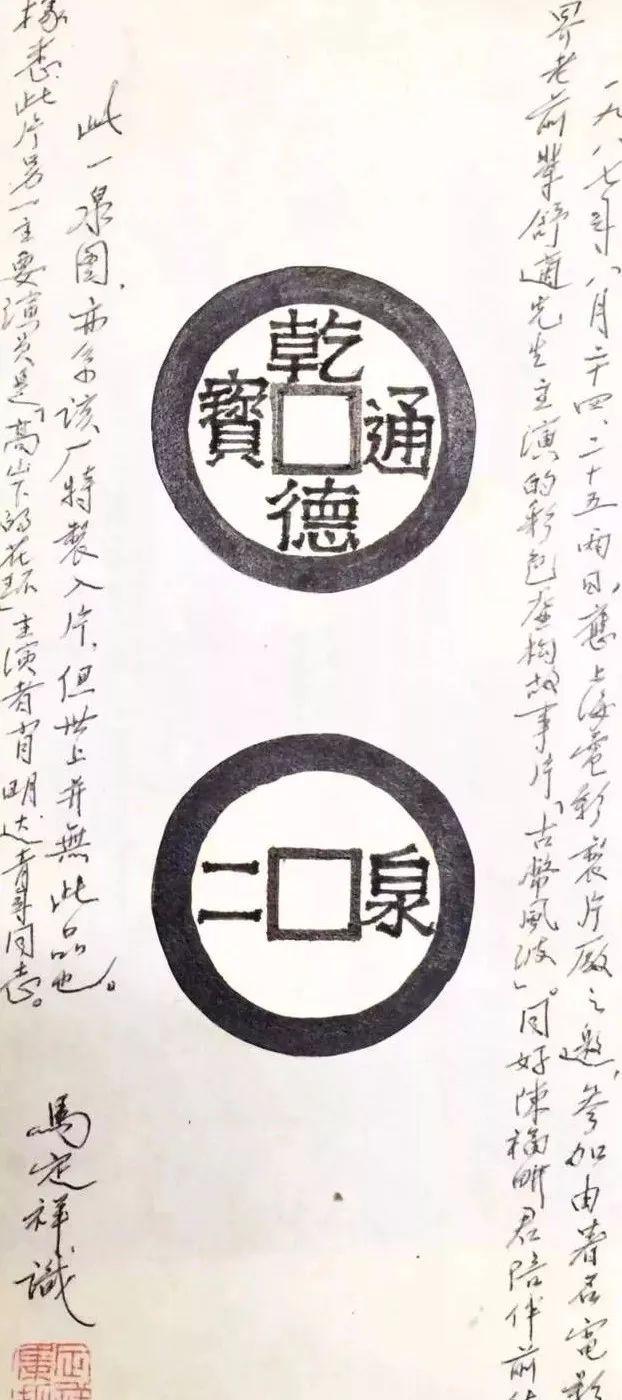 一九八七年八月二十四、二十五兩日，應上海電影製片廠之邀，參加由著名電影
界老前輩舒適先生主演的彩色虛構故事片「古幣風波」。同好陳福畊君陪伴前
乾德通寶
泉二
此一泉圖，亦系該厂特製入片，但世上并無此品也。
據悉此片另一主要演員是「高山下的花环」主演者肖明达青年同志。
馬定祥識